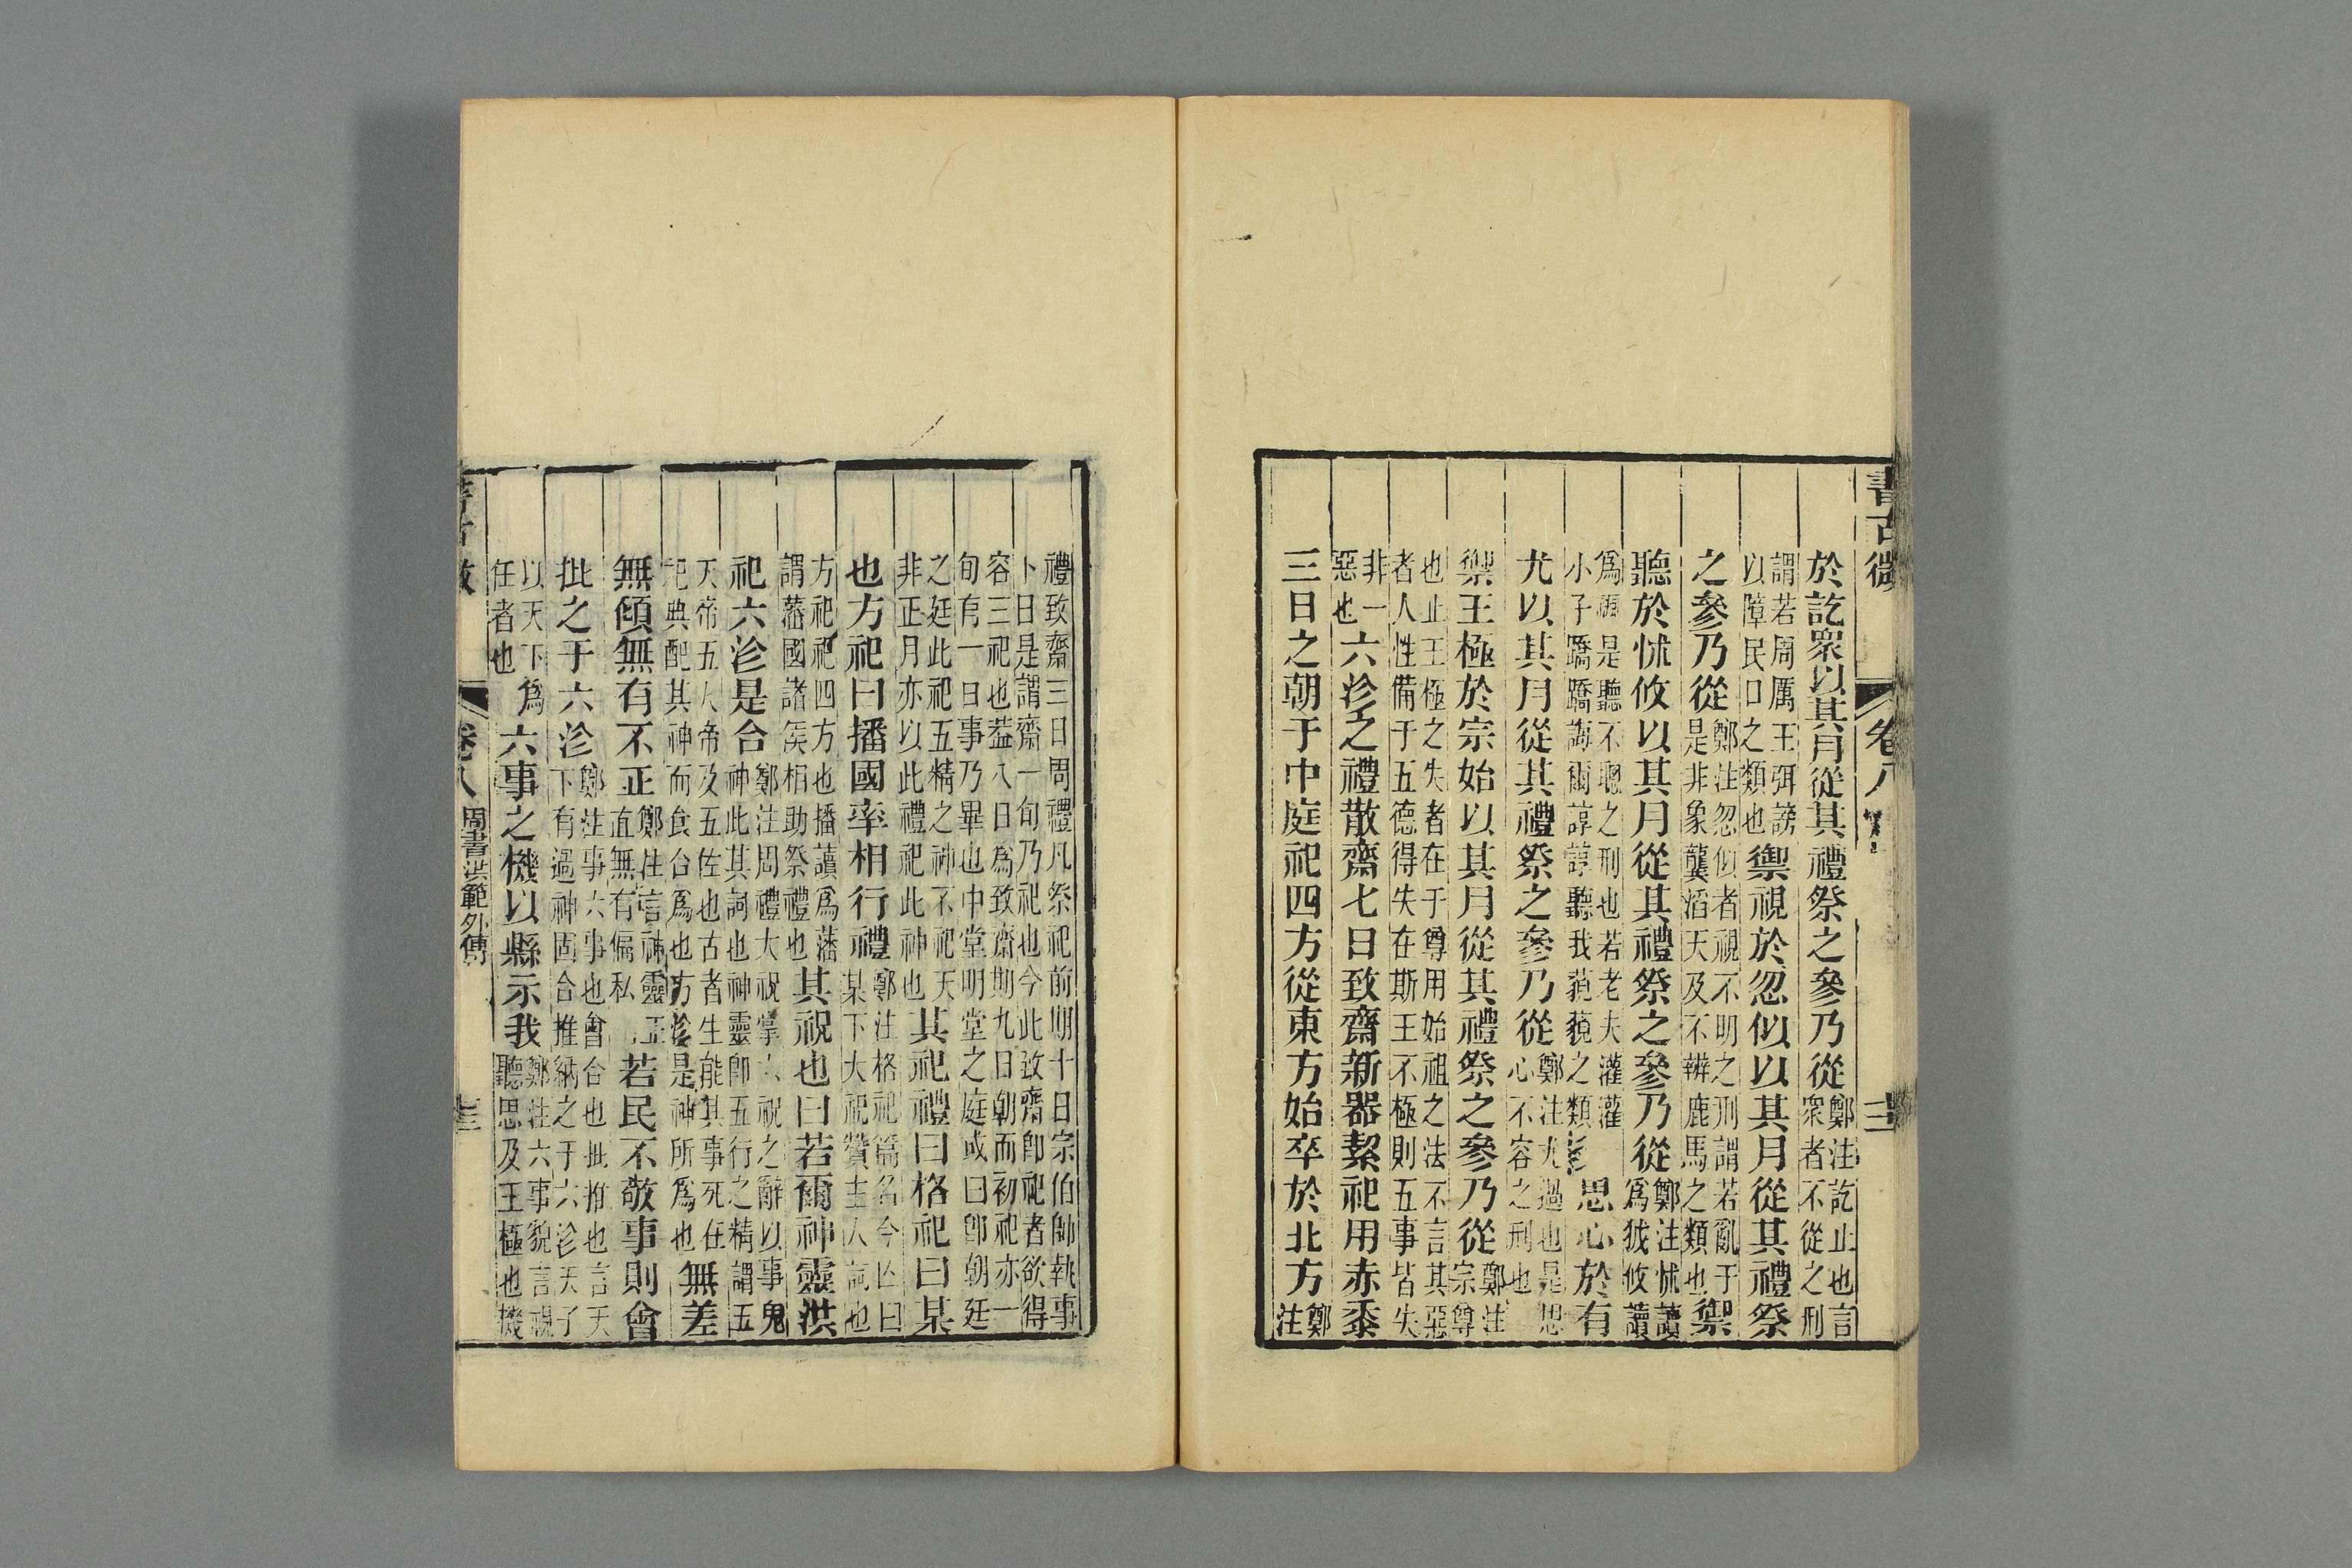 書古微 卷八
於訖衆以其月從其禮祭之參乃從鄭注訖止也言衆者不從之刑
謂若周厲王弭謗以障民口之類也禦視於忽似以其月從其禮祭
之參乃從鄭注忽似者視不明之刑謂若亂于是非象龔滔天及不辨鹿馬之類也禦
聽於怵攸以其月從其禮祭之參乃從鄭注怵讀爲狘攸讀
爲是聽不聰之刑也若老夫灌灌小子蹻蹻誨爾諄諄聽我藐藐之類思心於有
尤以其月從其禮祭之參乃從鄭注尤過也是思心不容之刑也
禦王極於宗始以其月從其禮祭之參乃從鄭注宗尊
也止王極之失者在于尊用始祖之法不言其惡者人性備于五德得失在斯王不極則五事皆失
非一惡也六沴之禮散齋七日致齋新器絜祀用赤黍
三日之朝于中庭祀四方從東方始卒於北方鄭注
禮致齋三日周禮凡祭祀前期十日宗伯帥執事卜日是謂齋一旬乃祀也今此致齋卽祀者欲得
容三祀也蓋八日爲致齋期九日朝而初祀亦一旬有一日事乃畢也中堂明堂之庭或曰卽朝廷
之廷此祀五精之神不祀天非正月亦以此禮祀此神也其祀禮曰格祀曰某
也方祀曰播國率相行禮鄭注格祀篇名今亾曰某下大祝贊主人詞也
方祀祀四方也播讀爲藩謂藩國諸矦相助祭禮也其祝也曰若爾神靈洪
祀六沴是合鄭注周禮大祝掌六祝之辭以事鬼神此其詞也神靈卽五行之精謂五
天帝五人帝及五佐也古者生能其事死在祀典配其神而食合爲也方沴是神所爲也無差
無傾無有不正鄭注言神靈正直無有偏私若民不敬事則會
批之于六沴鄭注事六事也會合也批推也言天下有過神固合推納之于六沴天子
以天下爲任者也六事之機以縣示我鄭注六事貌言視聽思及王極也機
卷八 周書洪範外傳